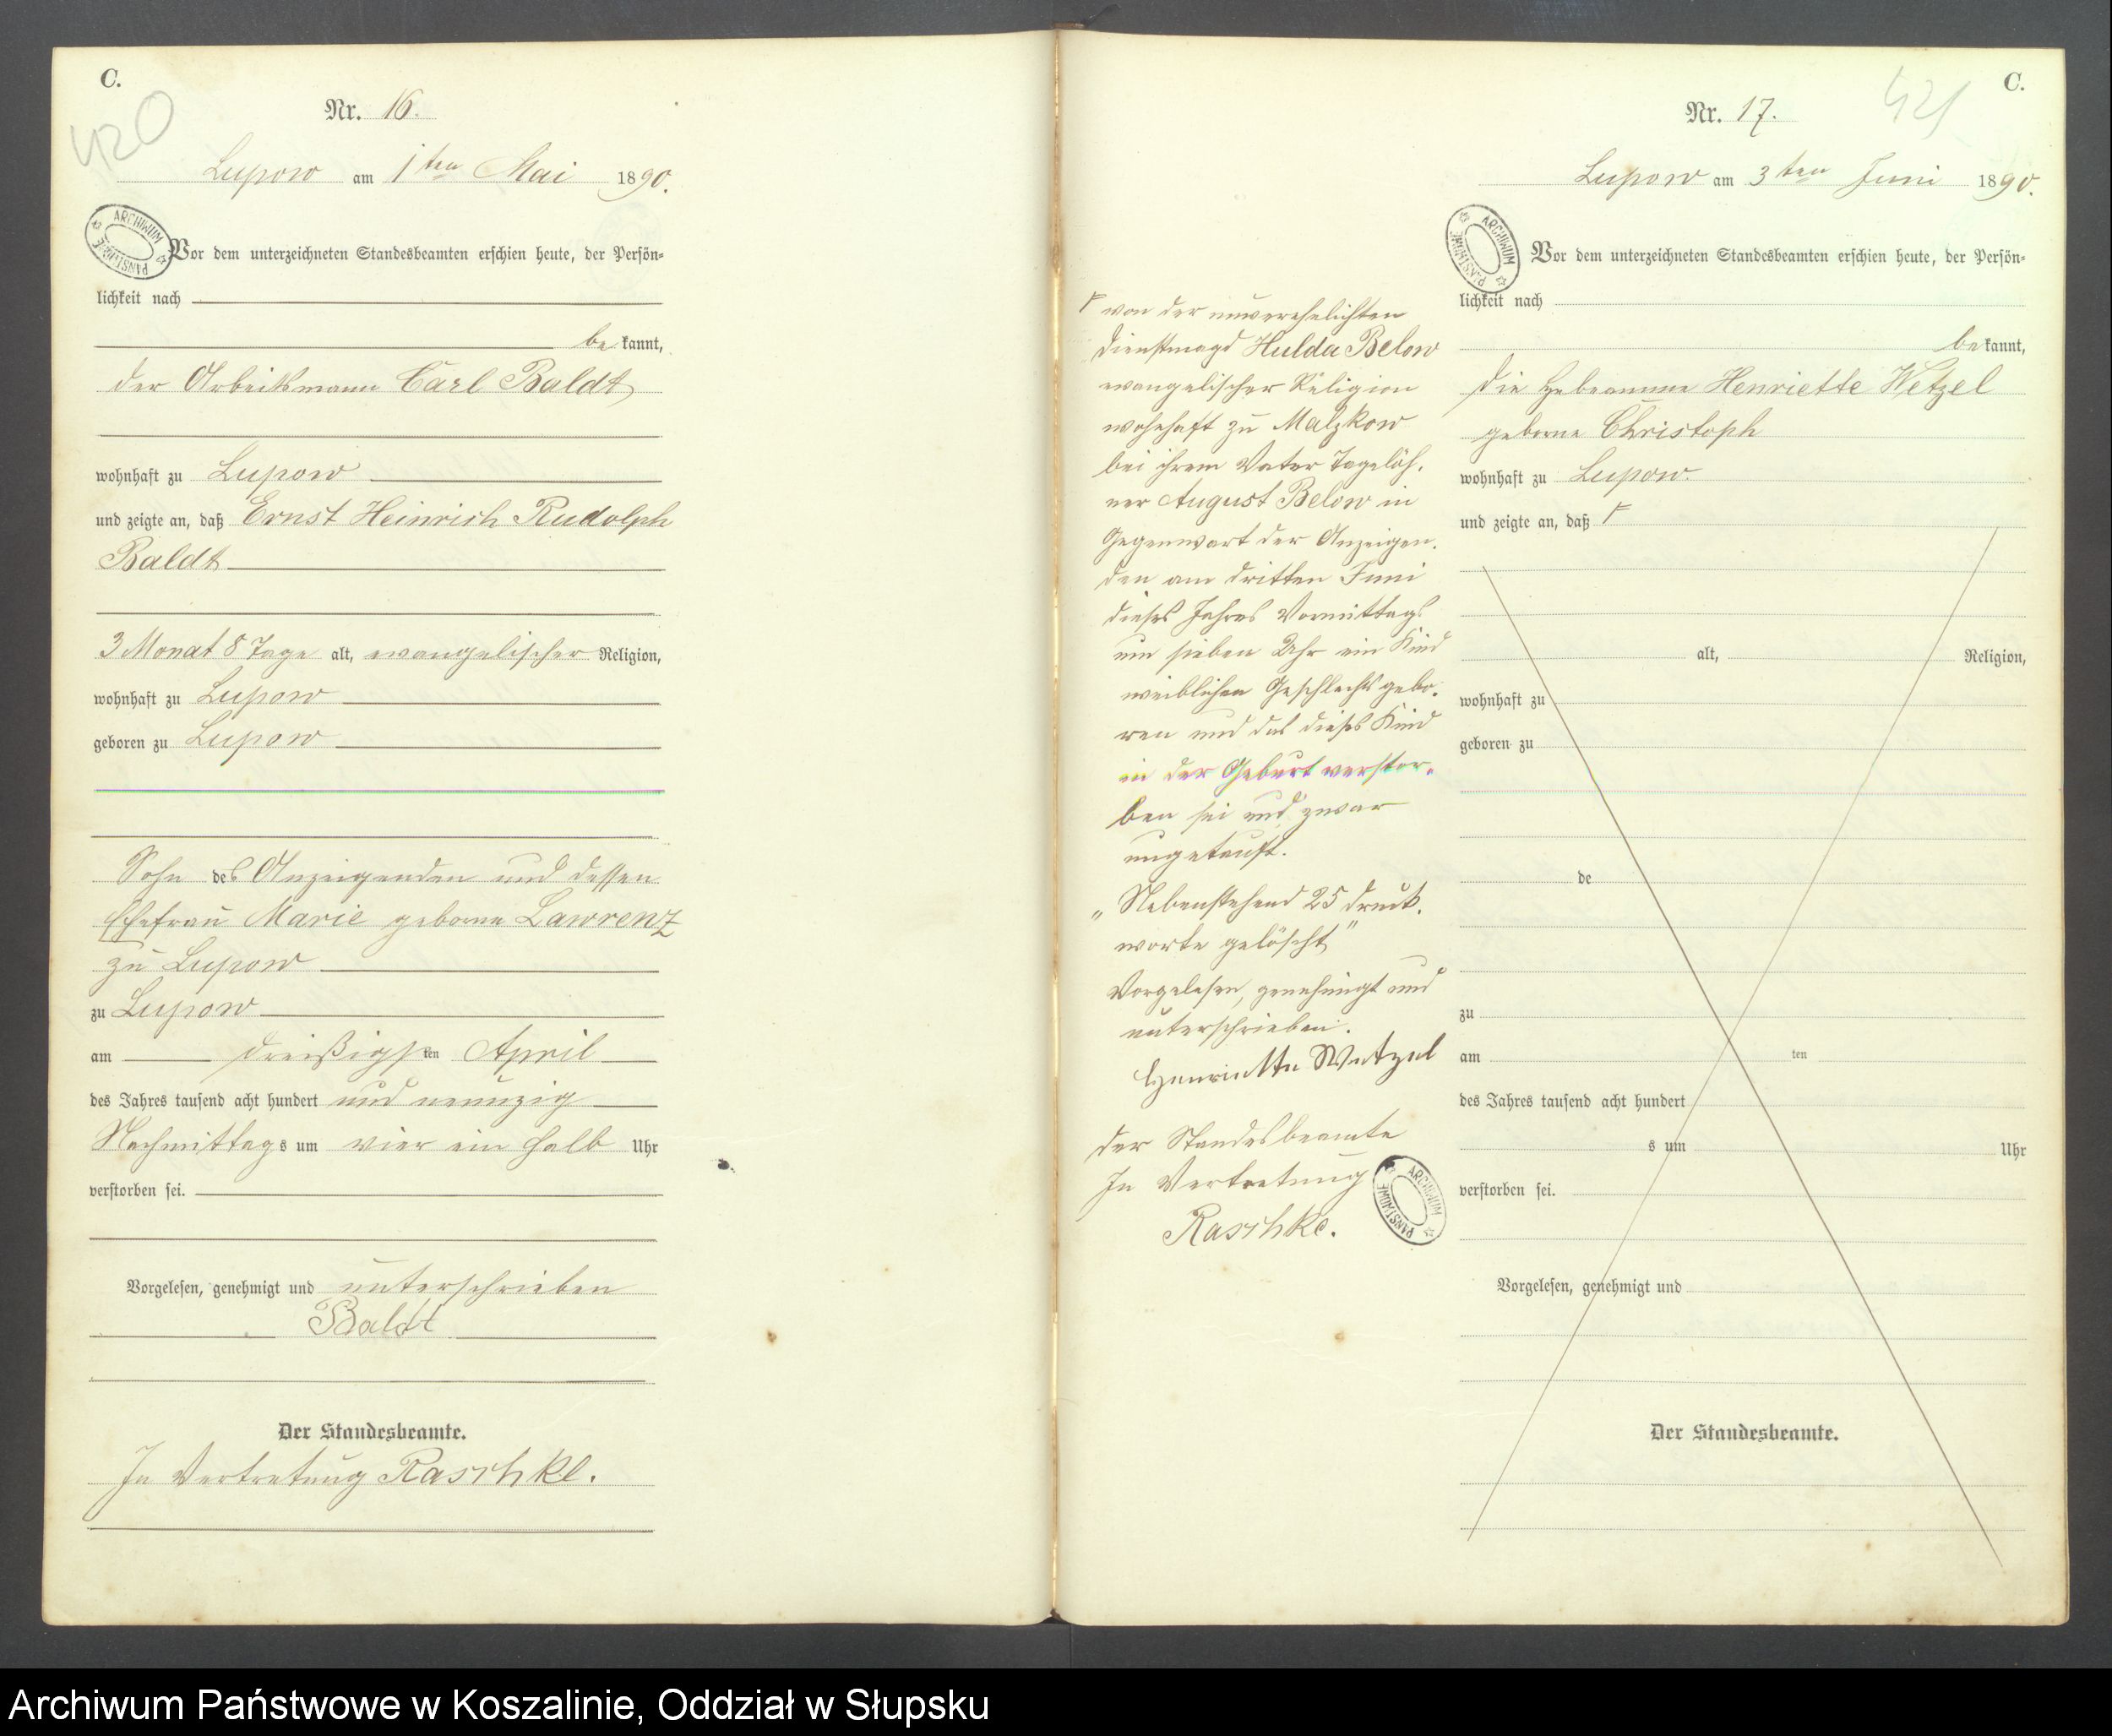 C.
420
Nr. 16.
Lupow am 1ten Mai 1890.
ARCHIWUM PAŃSTWOWE
Vor dem unterzeichneten Standesbeamten erschien heute, der Persön-
lichkeit nach
be kannt,
der Arbeitsmann Carl Baldt
wohnhaft zu Lupow
und zeigte an, daß Ernst Heinrich Rudolph
Baldt
3 Monat 8 Tage alt, evangelischer Religion,
wohnhaft zu Lupow
geboren zu Lupow
Sohn des Anzeigenden und dessen
Ehefrau Marie geborne Lawrenz
zu Lupow
zu Lupow
am dreißigsten April
des Jahres tausend acht hundert und neunzig
Nachmittags um vier ein halb Uhr
verstorben sei.
Vorgelesen, genehmigt und unterschrieben
Baldt
Der Standesbeamte.
In Vertretung Raschke.
C.
421
Nr. 17.
Lupow am 3ten Juni 1890.
ARCHIWUM PAŃSTWOWE
Vor dem unterzeichneten Standesbeamten erschien heute, der Persön-
lichkeit nach
be kannt,
die Hebeamme Henriette Wetzel
geborne Christoph
wohnhaft zu Lupow.
und zeigte an, daß
alt, Religion,
wohnhaft zu
geboren zu
de
zu
am ten
des Jahres tausend acht hundert
s um Uhr
verstorben sei.
Vorgelesen, genehmigt und
Der Standesbeamte.
von der unverehelichten
Dienstmagd Hulda Below
evangelischer Religion
wohnhaft zu Malzkow
bei ihrem Vater Tagelöh-
ner August Below in
Gegenwart der Anzeigen-
den am dritten Juni
dieses Jahres Vormittags
um sieben Uhr ein Kind
weiblichen Geschlechts gebo-
ren und das dieses Kind
in der Geburt verstor-
ben sei und zwar
ungetauft.
„Nebenstehend 25 Druck-
worte gelöscht"
Vorgelesen, genehmigt und
unterschrieben.
Henriette Wetzel
Der Standesbeamte
In Vertretung
Raschke.
ARCHIWUM PAŃSTWOWE
Archiwum Państwowe w Koszalinie, Oddział w Słupsku